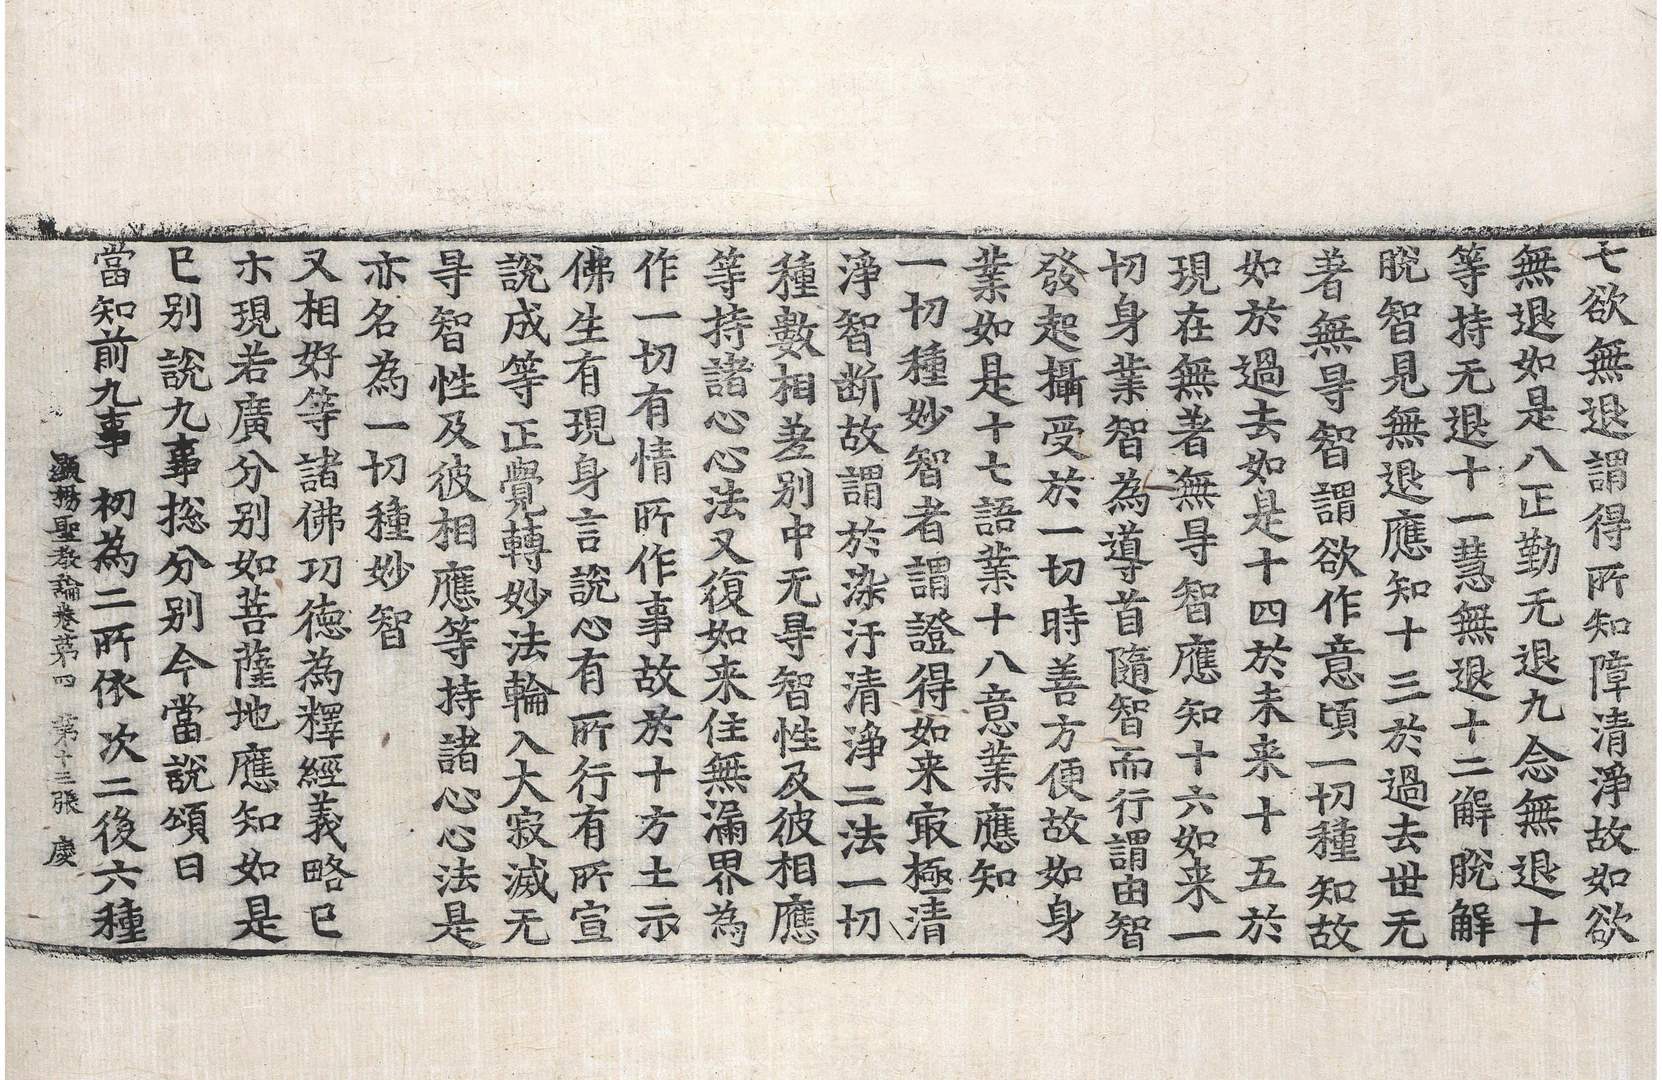 七欲無退謂得所知障清淨故如欲
無退如是八正勤无退九念無退十
等持无退十一慧無退十二解脫解
脫智見無退應知十三於過去世无
著無㝵智謂欲作意頃一切種知故
如於過去如是十四於未来十五於
現在無著無㝵智應知十六如来一
切身業智為導首隨智而行謂由智
發起攝受於一切時善方便故如身
業如是十七語業十八意業應知
一切種妙智者謂證得如来㝡極清
淨智断故謂於染汙清淨二法一切
種數相差别中无㝵智性及彼相應
等持諸心心法又復如来住無漏界為
作一切有情所作事故於十方土示
佛生有現身言說心有所行有所宣
說成等正覺轉妙法輪入大寂滅无
㝵智性及彼相應等持諸心心法是
亦名為一切種妙智
又相好等諸佛功德為釋經義略已
示現若廣分别如菩薩地應知如是
已别說九事揔分别今當說頌曰
當知前九事 初為二所依 次二後六種
顯揚聖教論卷第四 第十三張 慶